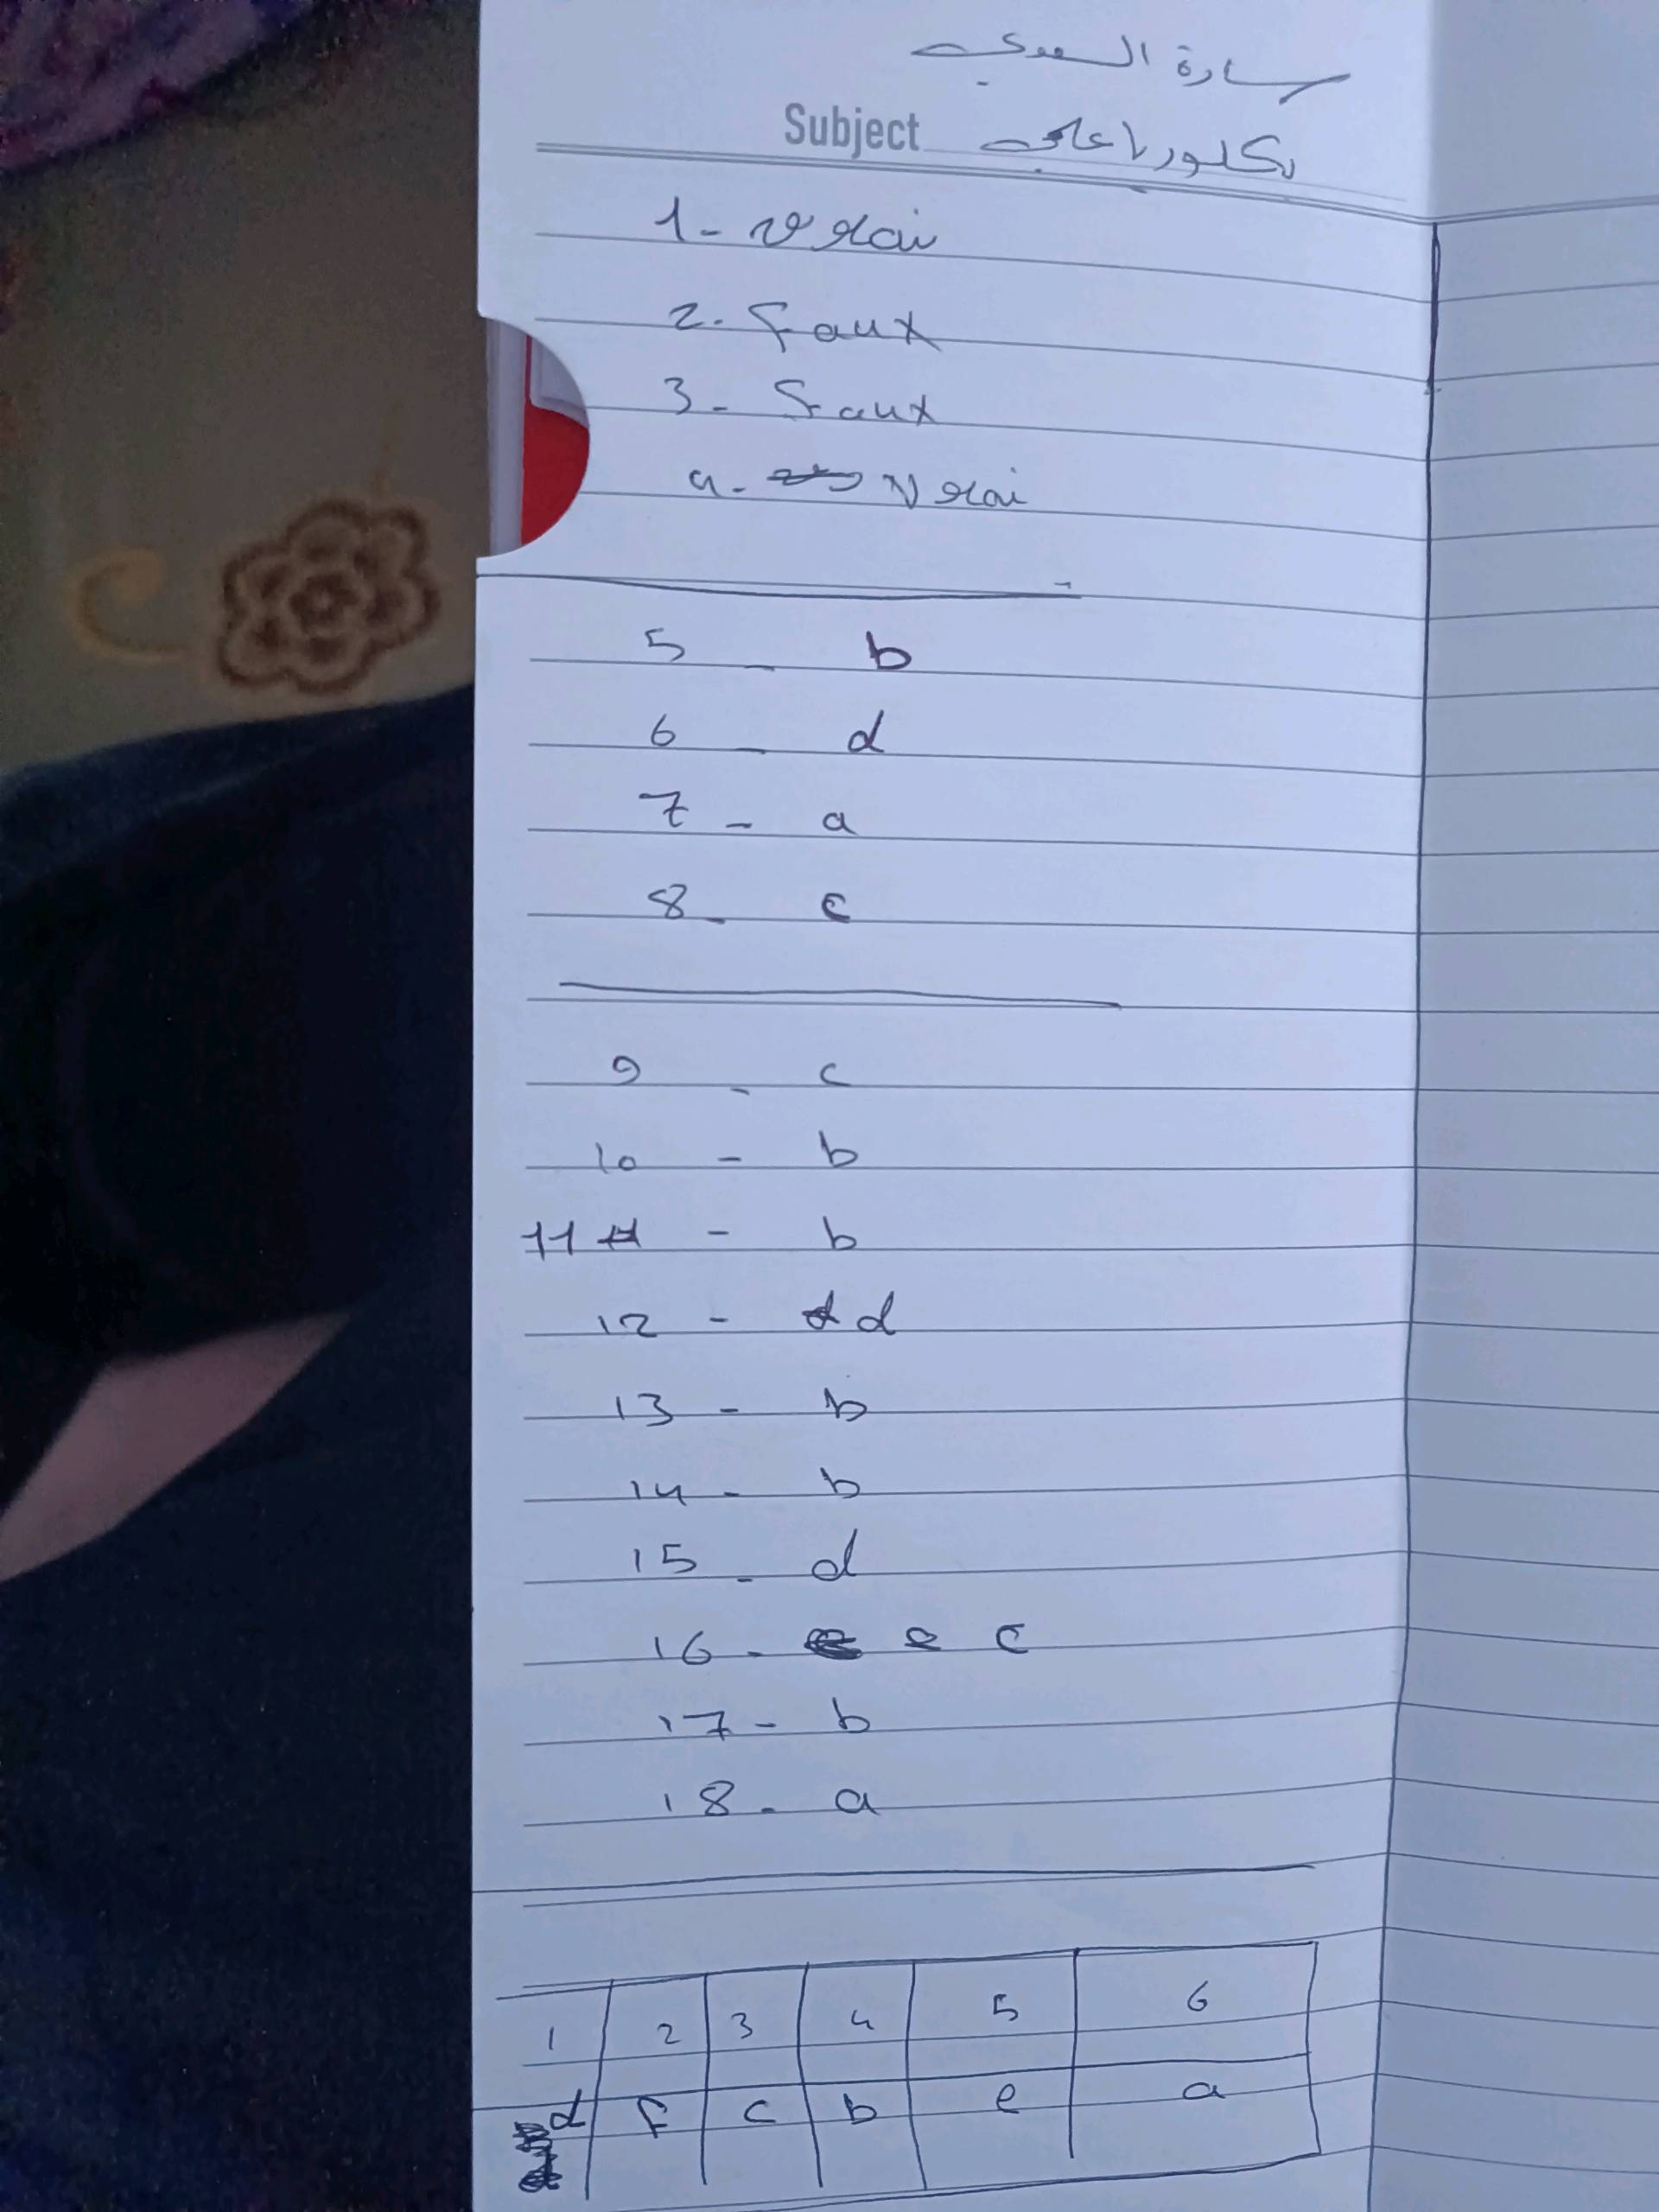 سارة السعدي
Subject بكلوريا علمي
1- vrai
2. Faux
3- Faux
4- vrai
5 - b
6 - d
7 - a
8 - c
9 - c
10 - b
11 - b
12 - d
13 - b
14 - b
15 - d
16 - c
17 - b
18 - a
1 2 3 4 5 6
d F c b e a